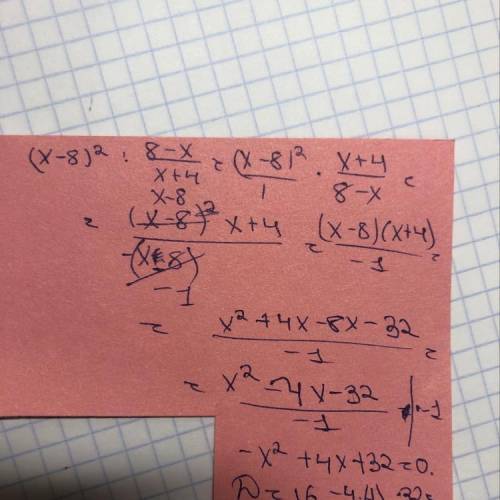 (x-8)² : (8-x)/(x+4) = (x-8)²/1 · (x+4)/(8-x) =
x-8
= (x-8)² x+4 / -(x-8) = (x-8)(x+4)/-1 =
-1
= (x²+4x-8x-32)/-1 =
= (x²-4x-32)/-1 | ·-1
-x²+4x+32=0.